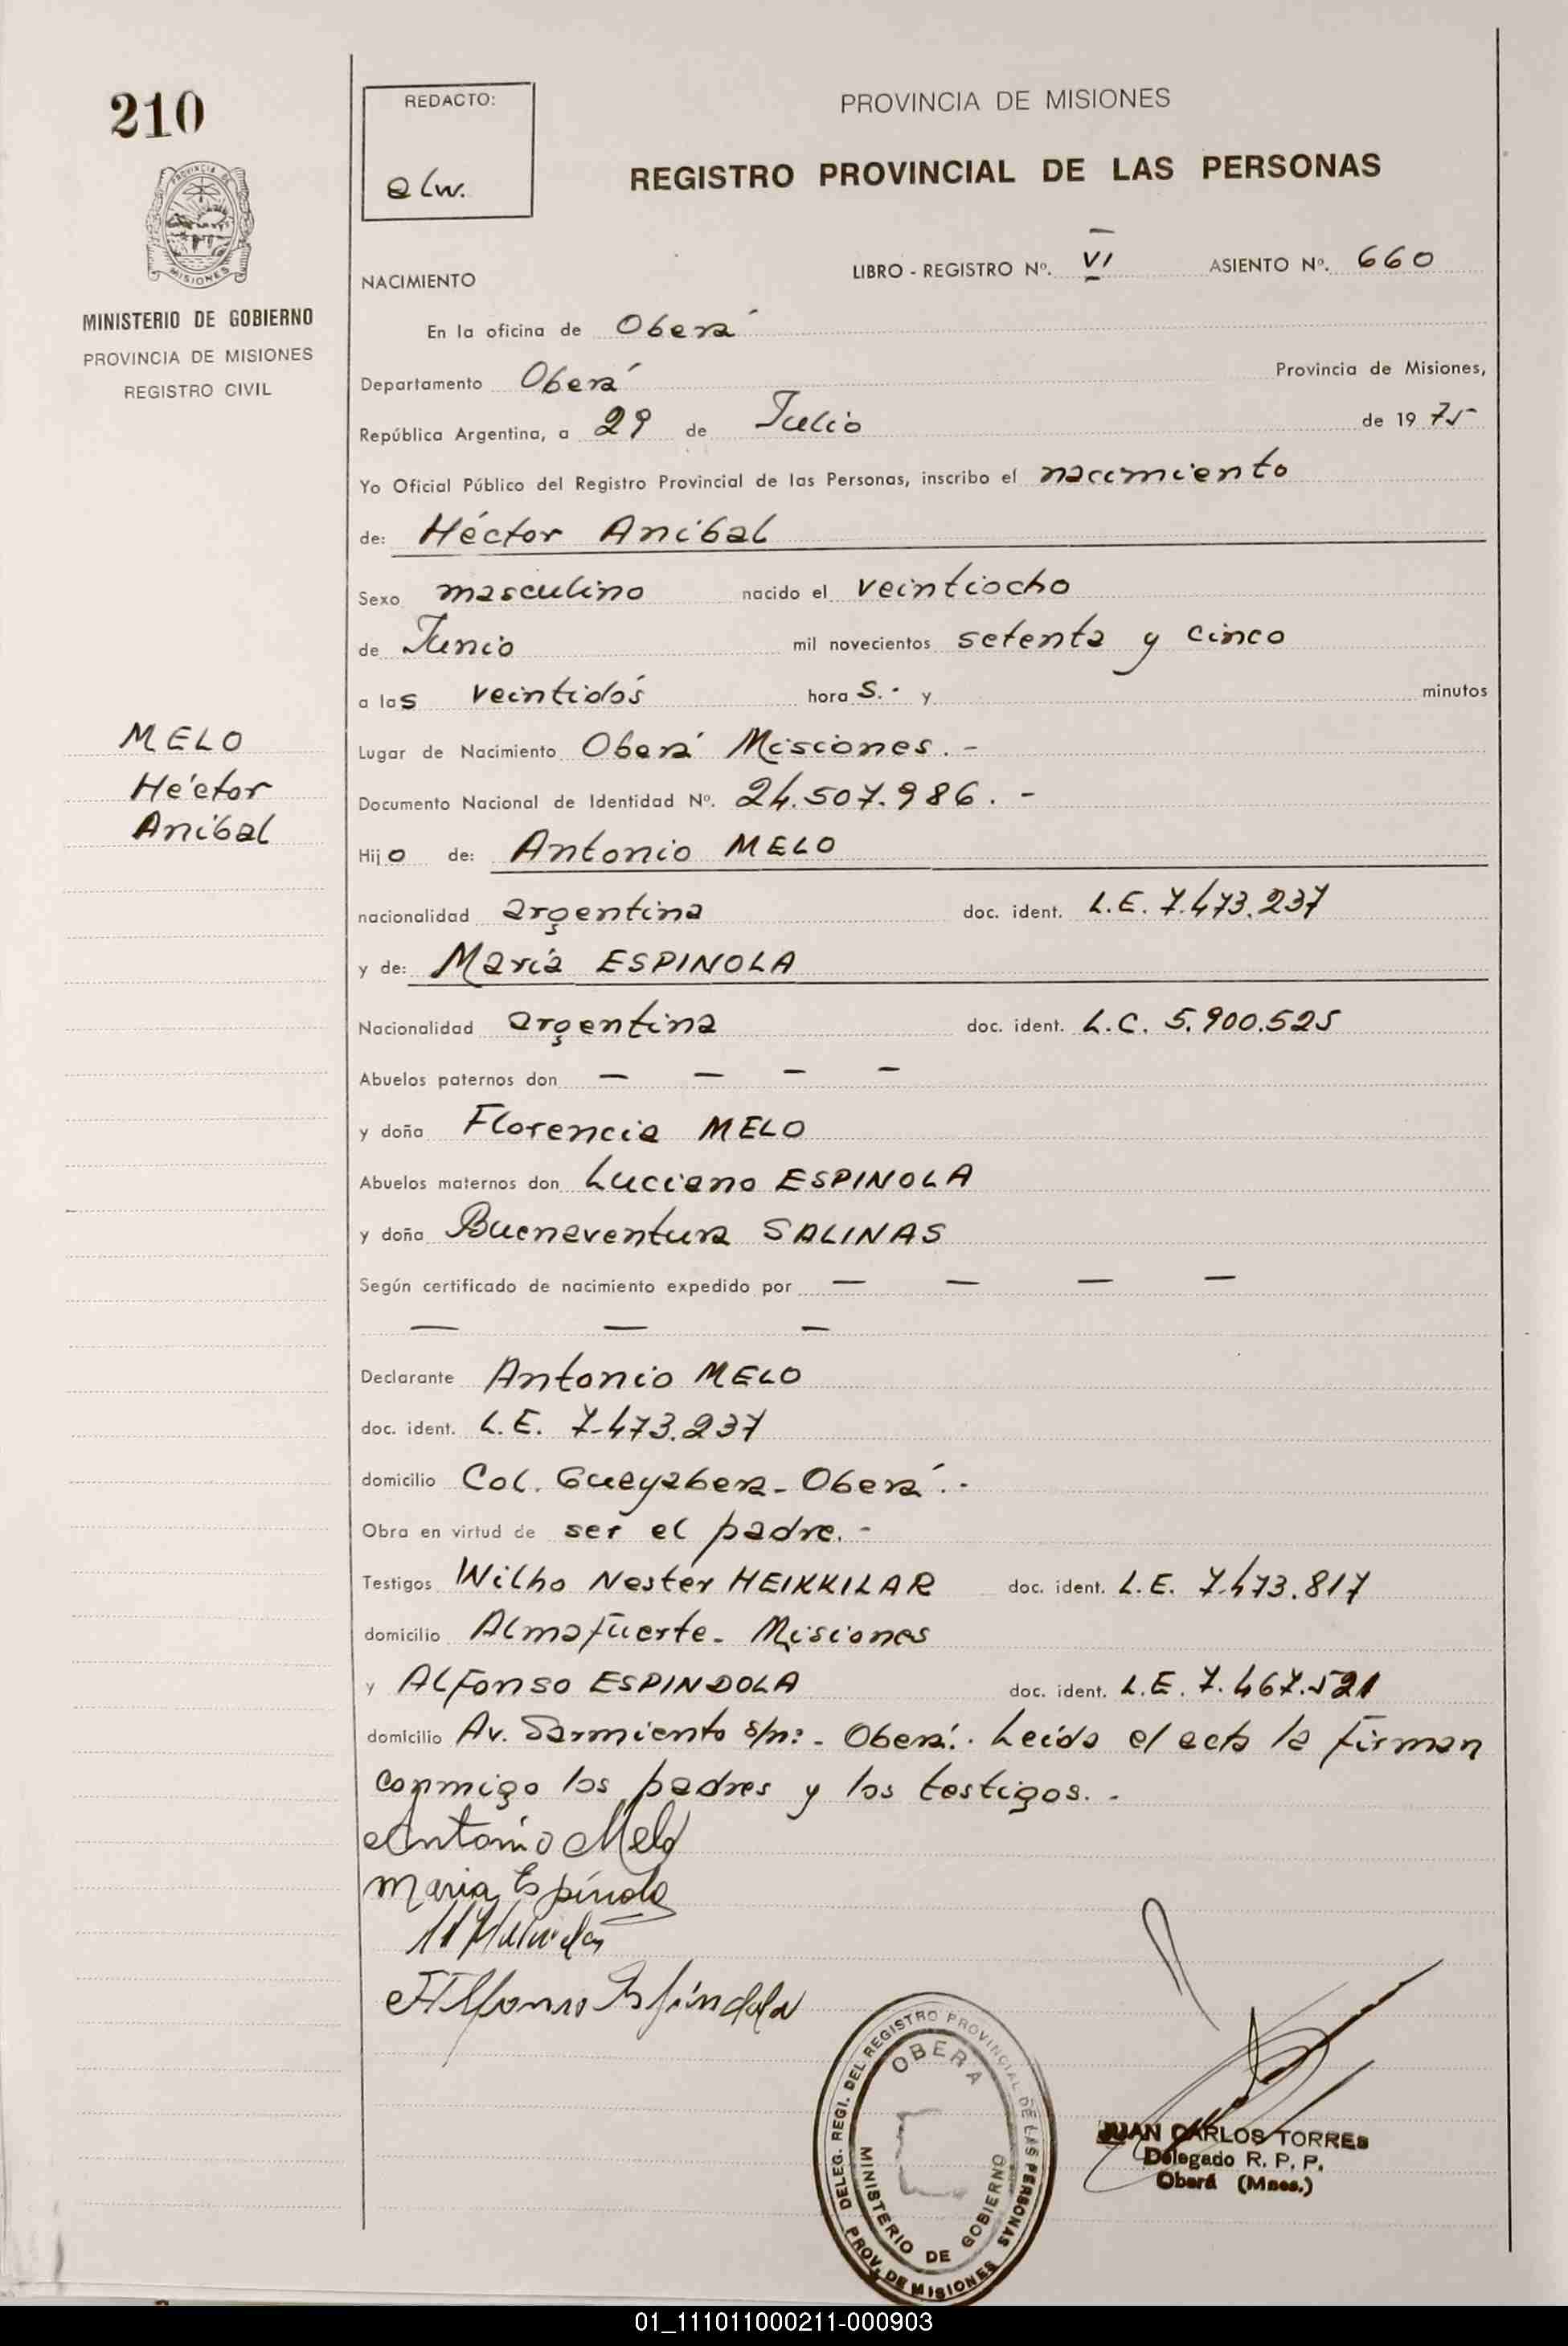 210
REDACTO:
elw.
PROVINCIA DE MISIONES
REGISTRO PROVINCIAL DE LAS PERSONAS
PROVINCIA DE
MISIONES
MINISTERIO DE GOBIERNO
PROVINCIA DE MISIONES
REGISTRO CIVIL
NACIMIENTO LIBRO - REGISTRO Nº. VI ASIENTO Nº. 660
En la oficina de Oberá
Departamento Oberá Provincia de Misiones,
República Argentina, a 29 de Julio de 1975
Yo Oficial Público del Registro Provincial de las Personas, inscribo el nacimiento
de: Héctor Anibal
Sexo masculino nacido el veintiocho
de Junio mil novecientos setenta y cinco
a las veintidós horas.- y minutos
MELO
Héctor
Anibal
Lugar de Nacimiento Oberá Misiones.-
Documento Nacional de Identidad Nº. 24.507.986.-
Hijo de: Antonio MELO
nacionalidad argentina doc. ident. L.E. 7.473.237
y de: María ESPINOLA
Nacionalidad argentina doc. ident. L.C. 5.900.525
Abuelos paternos don — — — —
y doña Florencia MELO
Abuelos maternos don Luciano ESPINOLA
y doña Buenaventura SALINAS
Según certificado de nacimiento expedido por — — — —
— — —
Declarante Antonio MELO
doc. ident. L.E. 7.473.237
domicilio Col. Gueyabera - Oberá.-
Obra en virtud de ser el padre.-
Testigos Wilho Nester HEIKKILAR doc. ident. L.E. 7.473.817
domicilio Almafuerte - Misiones
y Alfonso ESPINDOLA doc. ident. L.E. 7.467.521
domicilio Av. Sarmiento s/n: - Oberá.- Leída el acta la firman
conmigo los padres y los testigos.-
Antonio Melo
Maria Espínola
Alfonso Espíndola
DELEG. REGI. DEL REGISTRO PROVINCIAL DE LAS PERSONAS
OBERA
MINISTERIO DE GOBIERNO
PROV. DE MISIONES
JUAN CARLOS TORRES
Delegado R. P. P.
Oberá (Mnes.)
01_111011000211-000903